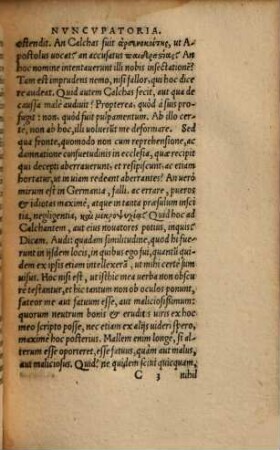 NVNCVPATORIA.
ostendit. An Calchas fuit ἀρσενοκοίτης, ut A-
postolus uocat? an accusatus παιδεραστίας? An
hoc nomine intentauerunt illi nobis insectationē?
Tam est imprudens nemo, nisi fallor, qui hoc dice
re audeat. Quid autem Calchas fecit, aut qua de
caussa malè audiuit? Propterea, quòd à suos pro-
fugit: non, quòd fuit pulpamentum. Ab illo cer-
tè, non ab hoc, illi uoluerūt me deformare. Sed
qua fronte, quomodo non cum reprehensione, ac
damnatione consuetudinis in ecclesia, qua recipit
qui decepti aberrauerunt, et respiscunt: ac etiam
hortatur, ut in uiam redeant aberrantes? An uerò
mirum est in Germania, falli, ac errare, pueros
& idiotas maximè, atque in tanta præsulum insci
tia, negligentia, καὶ μικροψυχίας? Quid hoc ad
Calchantem, aut eius nouatores potius, inquis?
Dicam. Audit quædam similitudine, quòd hi fue-
runt in ijsdem locis, in quibus ego fui, quenti quæ
dam ex ipsis etiam intellexerā, ut mihi certè sum
uisus. Hoc nisi est, ut isthic mea uerba non obscu
rè testantur, et hic tantum non ab oculos ponunt,
fateor me aut fatuum esse, aut maliciosissimum:
quorum neutrum bonis & eruditis uiris ex hoc
meo scripto posse, nec etiam ex alijs uideri spero,
maximè hoc posterius. Mallem enim longè, si al-
terum esse oporteret, esse fatuus, quàm aut malus,
aut maliciosus. Quid? ne quidem scuit quicquam,
C 3 nihil